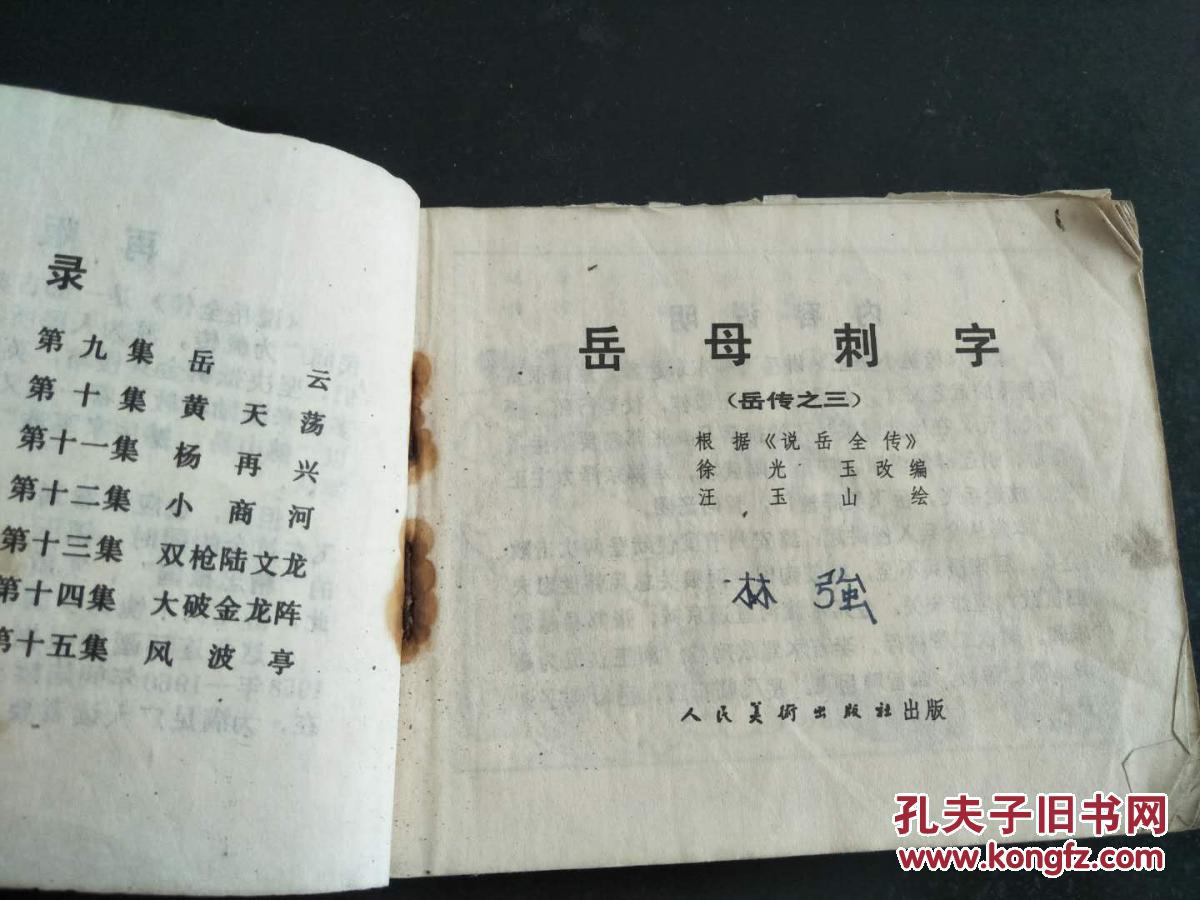 录
第九集 岳云
第十集 黄天荡
第十一集 杨再兴
第十二集 小商河
第十三集 双枪陆文龙
第十四集 大破金龙阵
第十五集 风波亭
岳母刺字
（岳传之三）
根据《说岳全传》
徐光玉改编
汪玉山绘
林強
人民美術出版社出版
孔夫子旧书网
www.kongfz.com